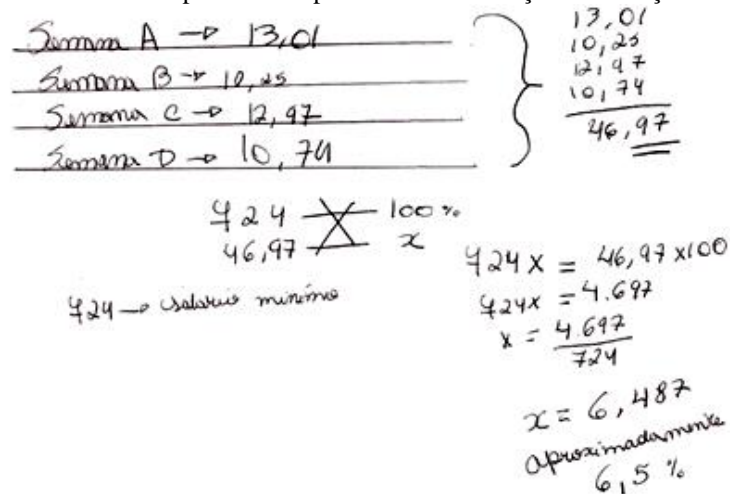 Semana A → 13,01
Semana B → 10,25
Semana C → 12,97
Semana D → 10,74
13,01
10,25
12,97
10,74
46,97
724 100 %
46,97 x
724 → salario minimo
724x = 46,97 x100
724x = 4.697
x = 4.697
724
x = 6,487
aproximadamente
6,5 %